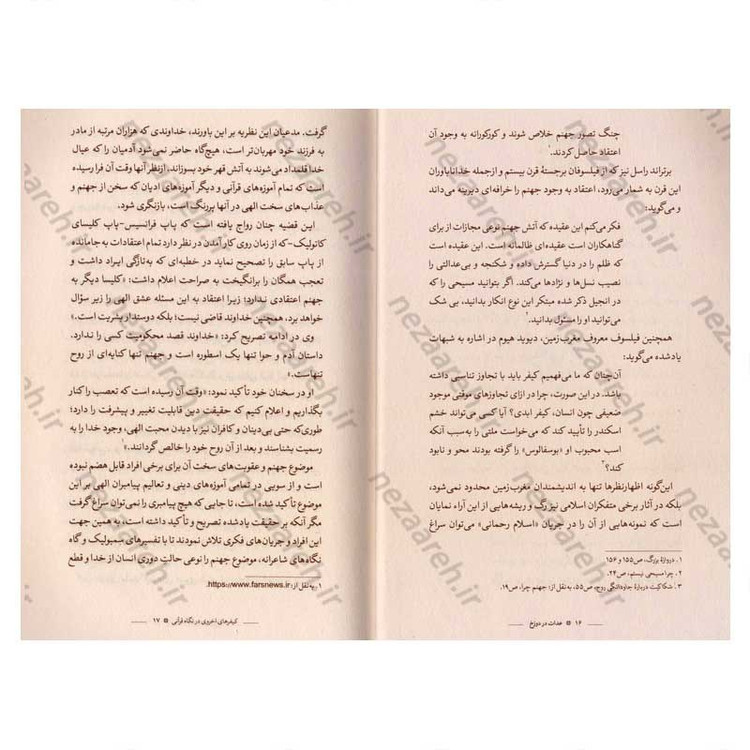 چنگ تصور جهنم خلاص شوند و کورکورانه به وجود آن
اعتقاد حاصل کردند.۱
برتراند راسل نیز که از فیلسوفان برجستهٔ قرن بیستم و ازجمله خداناباوران
این قرن به شمار می‌رود، اعتقاد به وجود جهنم را خرافه‌ای دیرینه می‌داند
و می‌گوید:
فکر می‌کنم این عقیده که آتش جهنم نوعی مجازات از برای
گناهکاران است عقیده‌ای ظالمانه است. این عقیده است
که ظلم را در دنیا گسترش داده و شکنجه و بی‌عدالتی را
نصیب نسل‌ها و نژادها می‌کند. اگر بتوانید مسیحی را که
در انجیل ذکر شده مبتکر این نوع انکار بدانید، بی شک
می‌توانید او را مسئول بدانید.۲
همچنین فیلسوف معروف مغرب‌زمین، دیوید هیوم در اشاره به شبهات
یادشده می‌گوید:
آن‌چنان که ما می‌فهمیم کیفر باید با تجاوز تناسبی داشته
باشد. در این صورت، چرا در ازای تجاوزهای موقتی موجود
ضعیفی چون انسان، کیفر ابدی؟ آیا کسی می‌تواند خشم
اسکندر را تأیید کند که می‌خواست ملتی را به‌سبب آنکه
اسب محبوب او «بوسفالوس» را گرفته بودند محو و نابود
کند؟۳
این‌گونه اظهارنظرها تنها به اندیشمندان مغرب‌زمین محدود نمی‌شود،
بلکه در آثار برخی متفکران اسلامی نیز رگ و ریشه‌هایی از این آراء نمایان
است که نمونه‌هایی از آن را در جریان «اسلام رحمانی» می‌توان سراغ
۱. دروازهٔ بزرگ، ص۱۵۵ و ۱۵۶
۲. چرا مسیحی نیستم، ص۲۴.
۳. شکاکیت دربارهٔ جاودانگی روح، ص۵۵، به‌نقل از: جهنم چرا، ص۱۹.
۱۶ عدالت در دوزخ
گرفت. مدعیان این نظریه بر این باورند، خداوندی که هزاران مرتبه از مادر
به فرزند خود مهربان‌تر است، هیچ‌گاه حاضر نمی‌شود آدمیان را که عیال
خدا قلمداد می‌شوند به آتش قهر خود بسوزاند، ازنظر آنها وقت آن فرا رسیده
است که تمام آموزه‌های قرآنی و دیگر آموزه‌های ادیان که سخن از جهنم و
عذاب‌های سخت الهی در آنها پررنگ است، بازنگری شود.
این قضیه چنان رواج یافته است که پاپ فرانسیس-پاپ کلیسای
کاتولیک-که از زمان روی کار آمدن در نظر دارد تمام اعتقادات به جا مانده
از پاپ سابق را تصحیح نماید در خطبه‌ای که به‌تازگی ایراد داشت و
تعجب همگان را برانگیخت به صراحت اعلام داشت: «کلیسا دیگر به
جهنم اعتقادی ندارد؛ زیرا اعتقاد به این مسئله عشق الهی را زیر سؤال
خواهد برد، همچنین خداوند قاضی نیست؛ بلکه دوستدار بشریت است.»
وی در ادامه تصریح کرد: «خداوند قصد محکومیت کسی را ندارد.
داستان آدم و حوا تنها یک اسطوره است و جهنم تنها کنایه‌ای از روح
تنهاست.»
او در سخنان خود تأکید نمود: «وقت آن رسیده است که تعصب را کنار
بگذاریم و اعلام کنیم که حقیقت دین قابلیت تغییر و پیشرفت را دارد؛
طوری‌که حتی بی‌دینان و کافران نیز با دیدن محبت الهی، وجود خدا را به
رسمیت بشناسند و بعد از آن روح خود را خالص گردانند.»۱
موضوع جهنم و عقوبت‌های سخت آن برای برخی افراد قابل هضم نبوده
است و از سویی در تمامی آموزه‌های دینی و تعالیم پیامبران الهی بر این
موضوع تأکید شده است، تا جایی که هیچ پیامبری را نمی‌توان سراغ گرفت
مگر آنکه بر حقیقت یادشده تصریح و تأکید داشته است، به همین جهت
این افراد و جریان‌های فکری تلاش نمودند تا با تفسیرهای سمبولیک و گاه
نگاه‌های شاعرانه، موضوع جهنم را نوعی حالت دوری انسان از خدا و قطع
۱. به نقل از: https://www.farsnews.ir.
کیفرهای اخروی در نگاه قرآنی ۱۷
nezaareh.ir